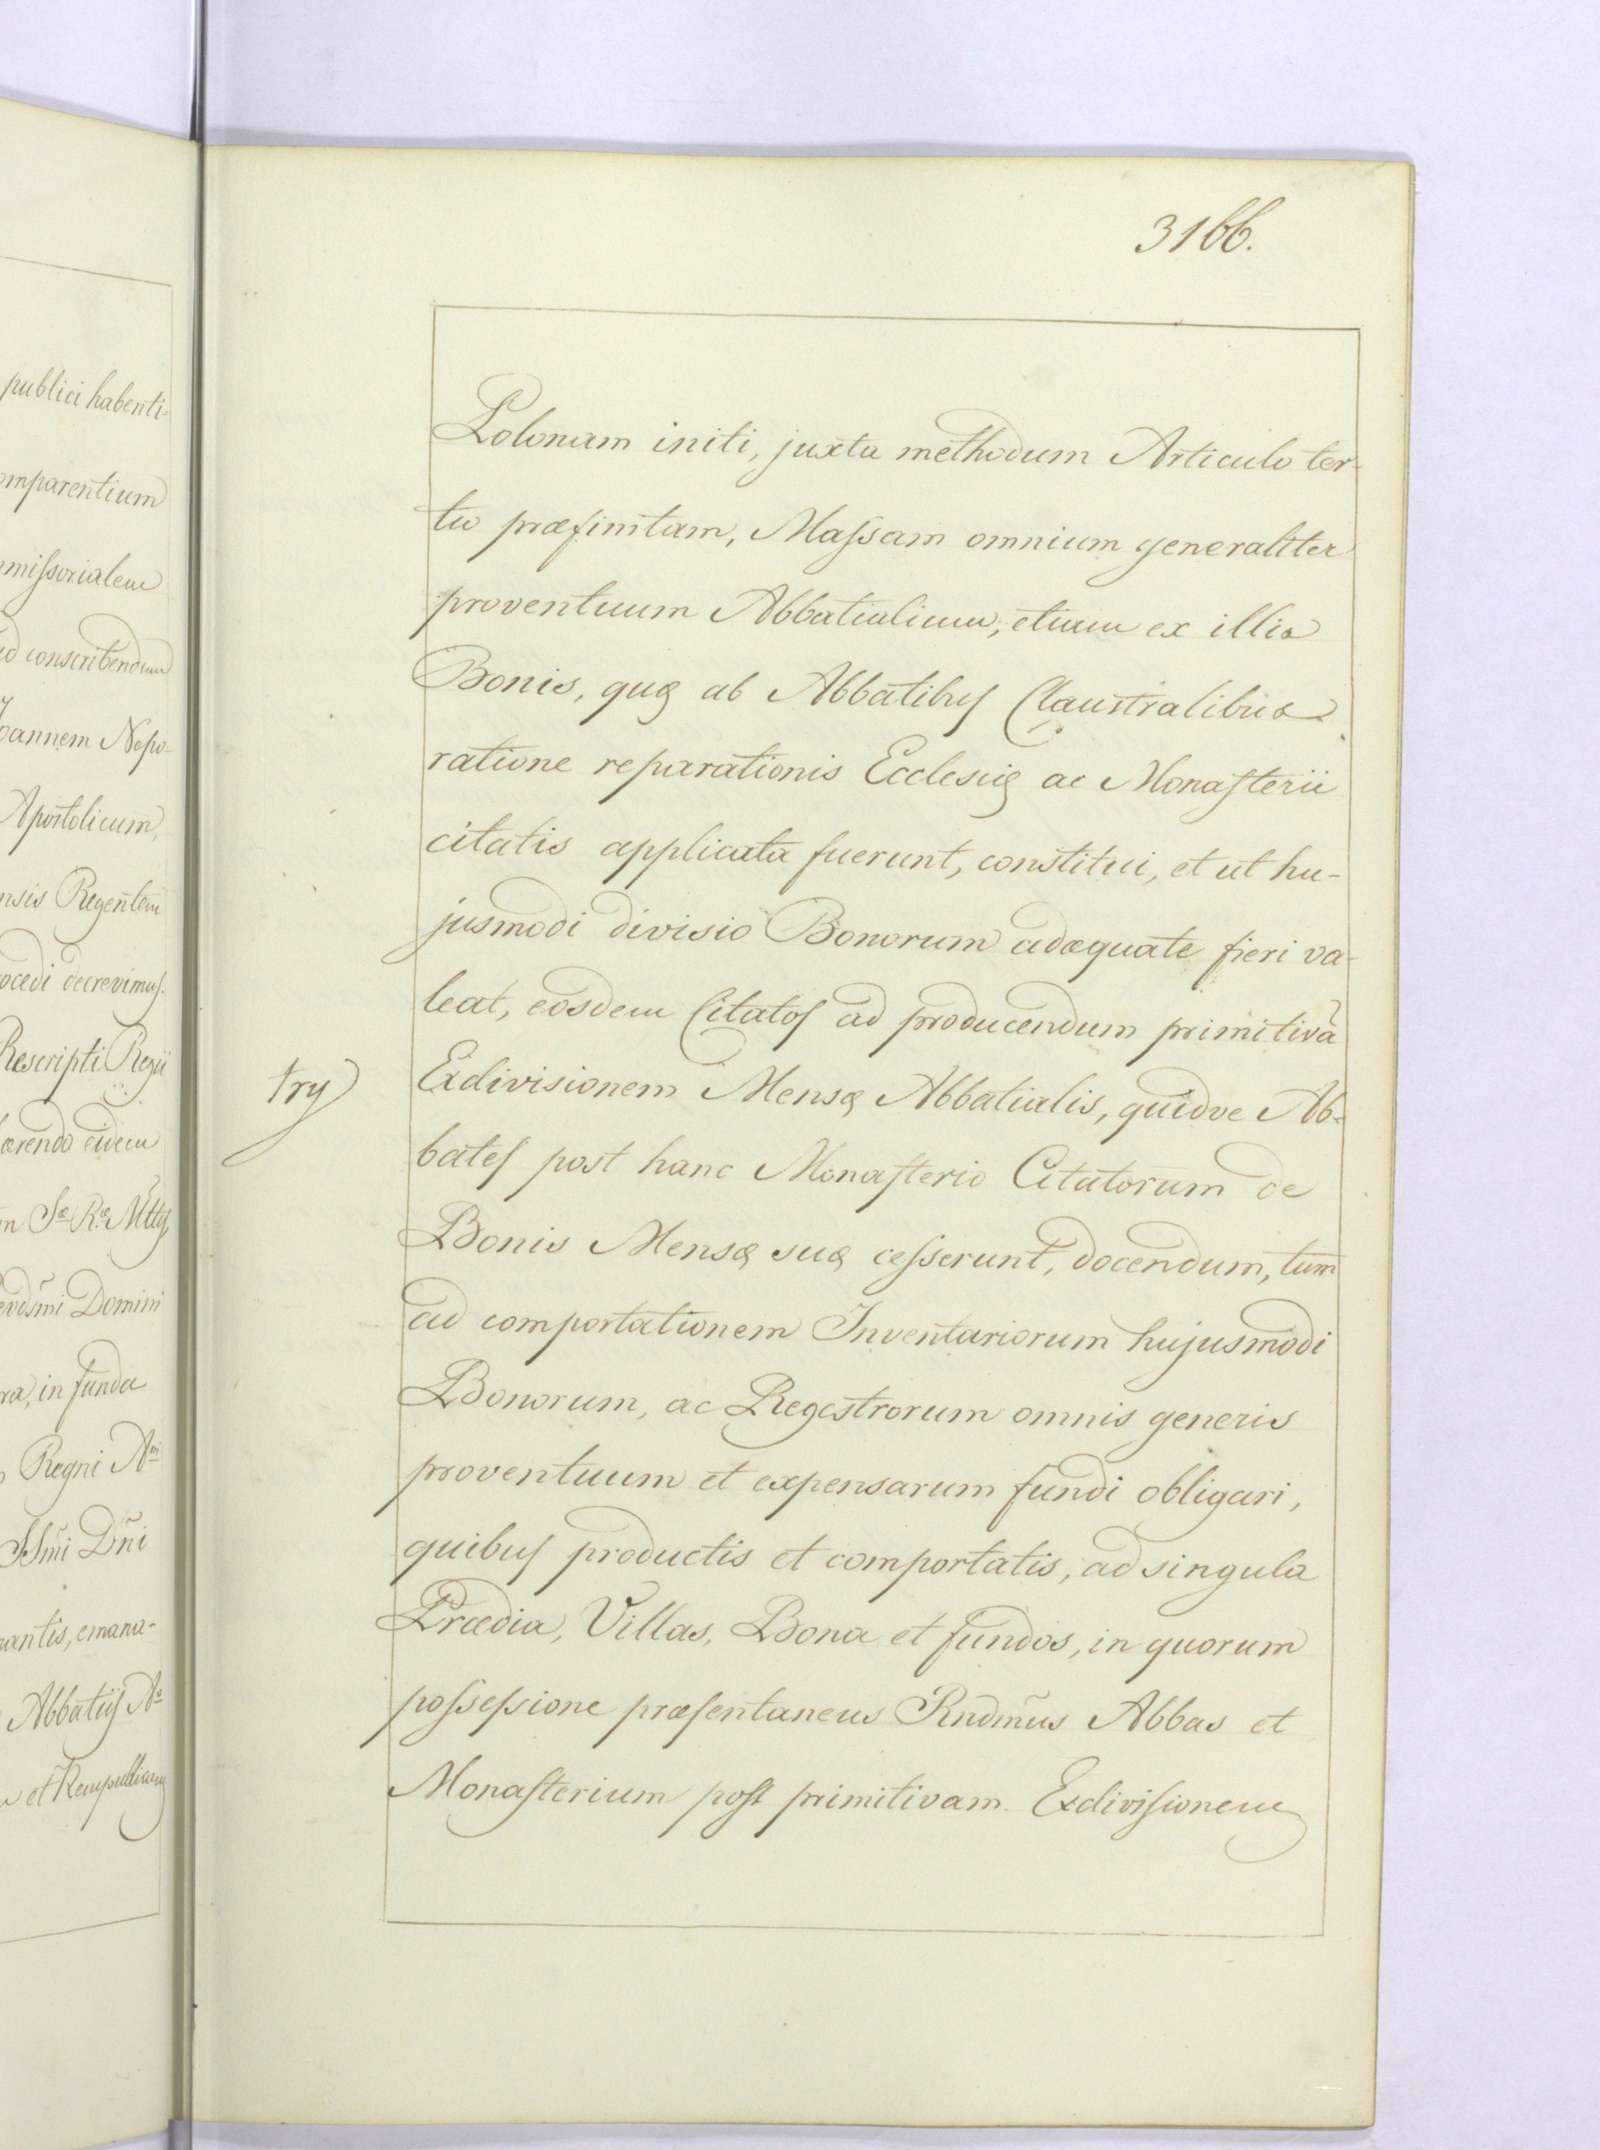 publici habenti-
omparentium
mißorialem
ad conscribendum
Joannem Nepo-
Apostolicum,
nsis Regentem
ocedi decrevimus.
Rescripti Regii
hærendo eidem
Domini
ra, in fundo
Regni
Dñi
nantis, emana-
Abbatiis
et Rempublicam
3166.
Polonam initi, juxta methodum Articulo ter-
tio præfinitam, Maßam omnium generaliter
proventuum Abbatialium, etiam ex illis
Bonis, quę ab Abbatibus Claustralibus
ratione reparationis Ecclesię ac Monasterii
citatis applicata fuerunt, constitui, et ut hu-
jusmodi divisio Bonorum adæquate fieri va-
leat, eosdem Citatos ad producendum primitivã
try
Exdivisionem Mensę Abbatialis, quidve Ab-
bates post hanc Monasterio Citatorum de
Bonis Mensę suę ceßerunt, docendum, tum
ad comportationem Inventariorum hujusmodi
Bonorum, ac Regestrorum omnis generis
proventuum et expensarum fundi obligari,
quibus productis et comportatis, ad singula
Prædia, Villas, Bona et fundos, in quorum
poßeßione præsentaneus Rndm̃us Abbas et
Monasterium post primitivam Exdivisionem